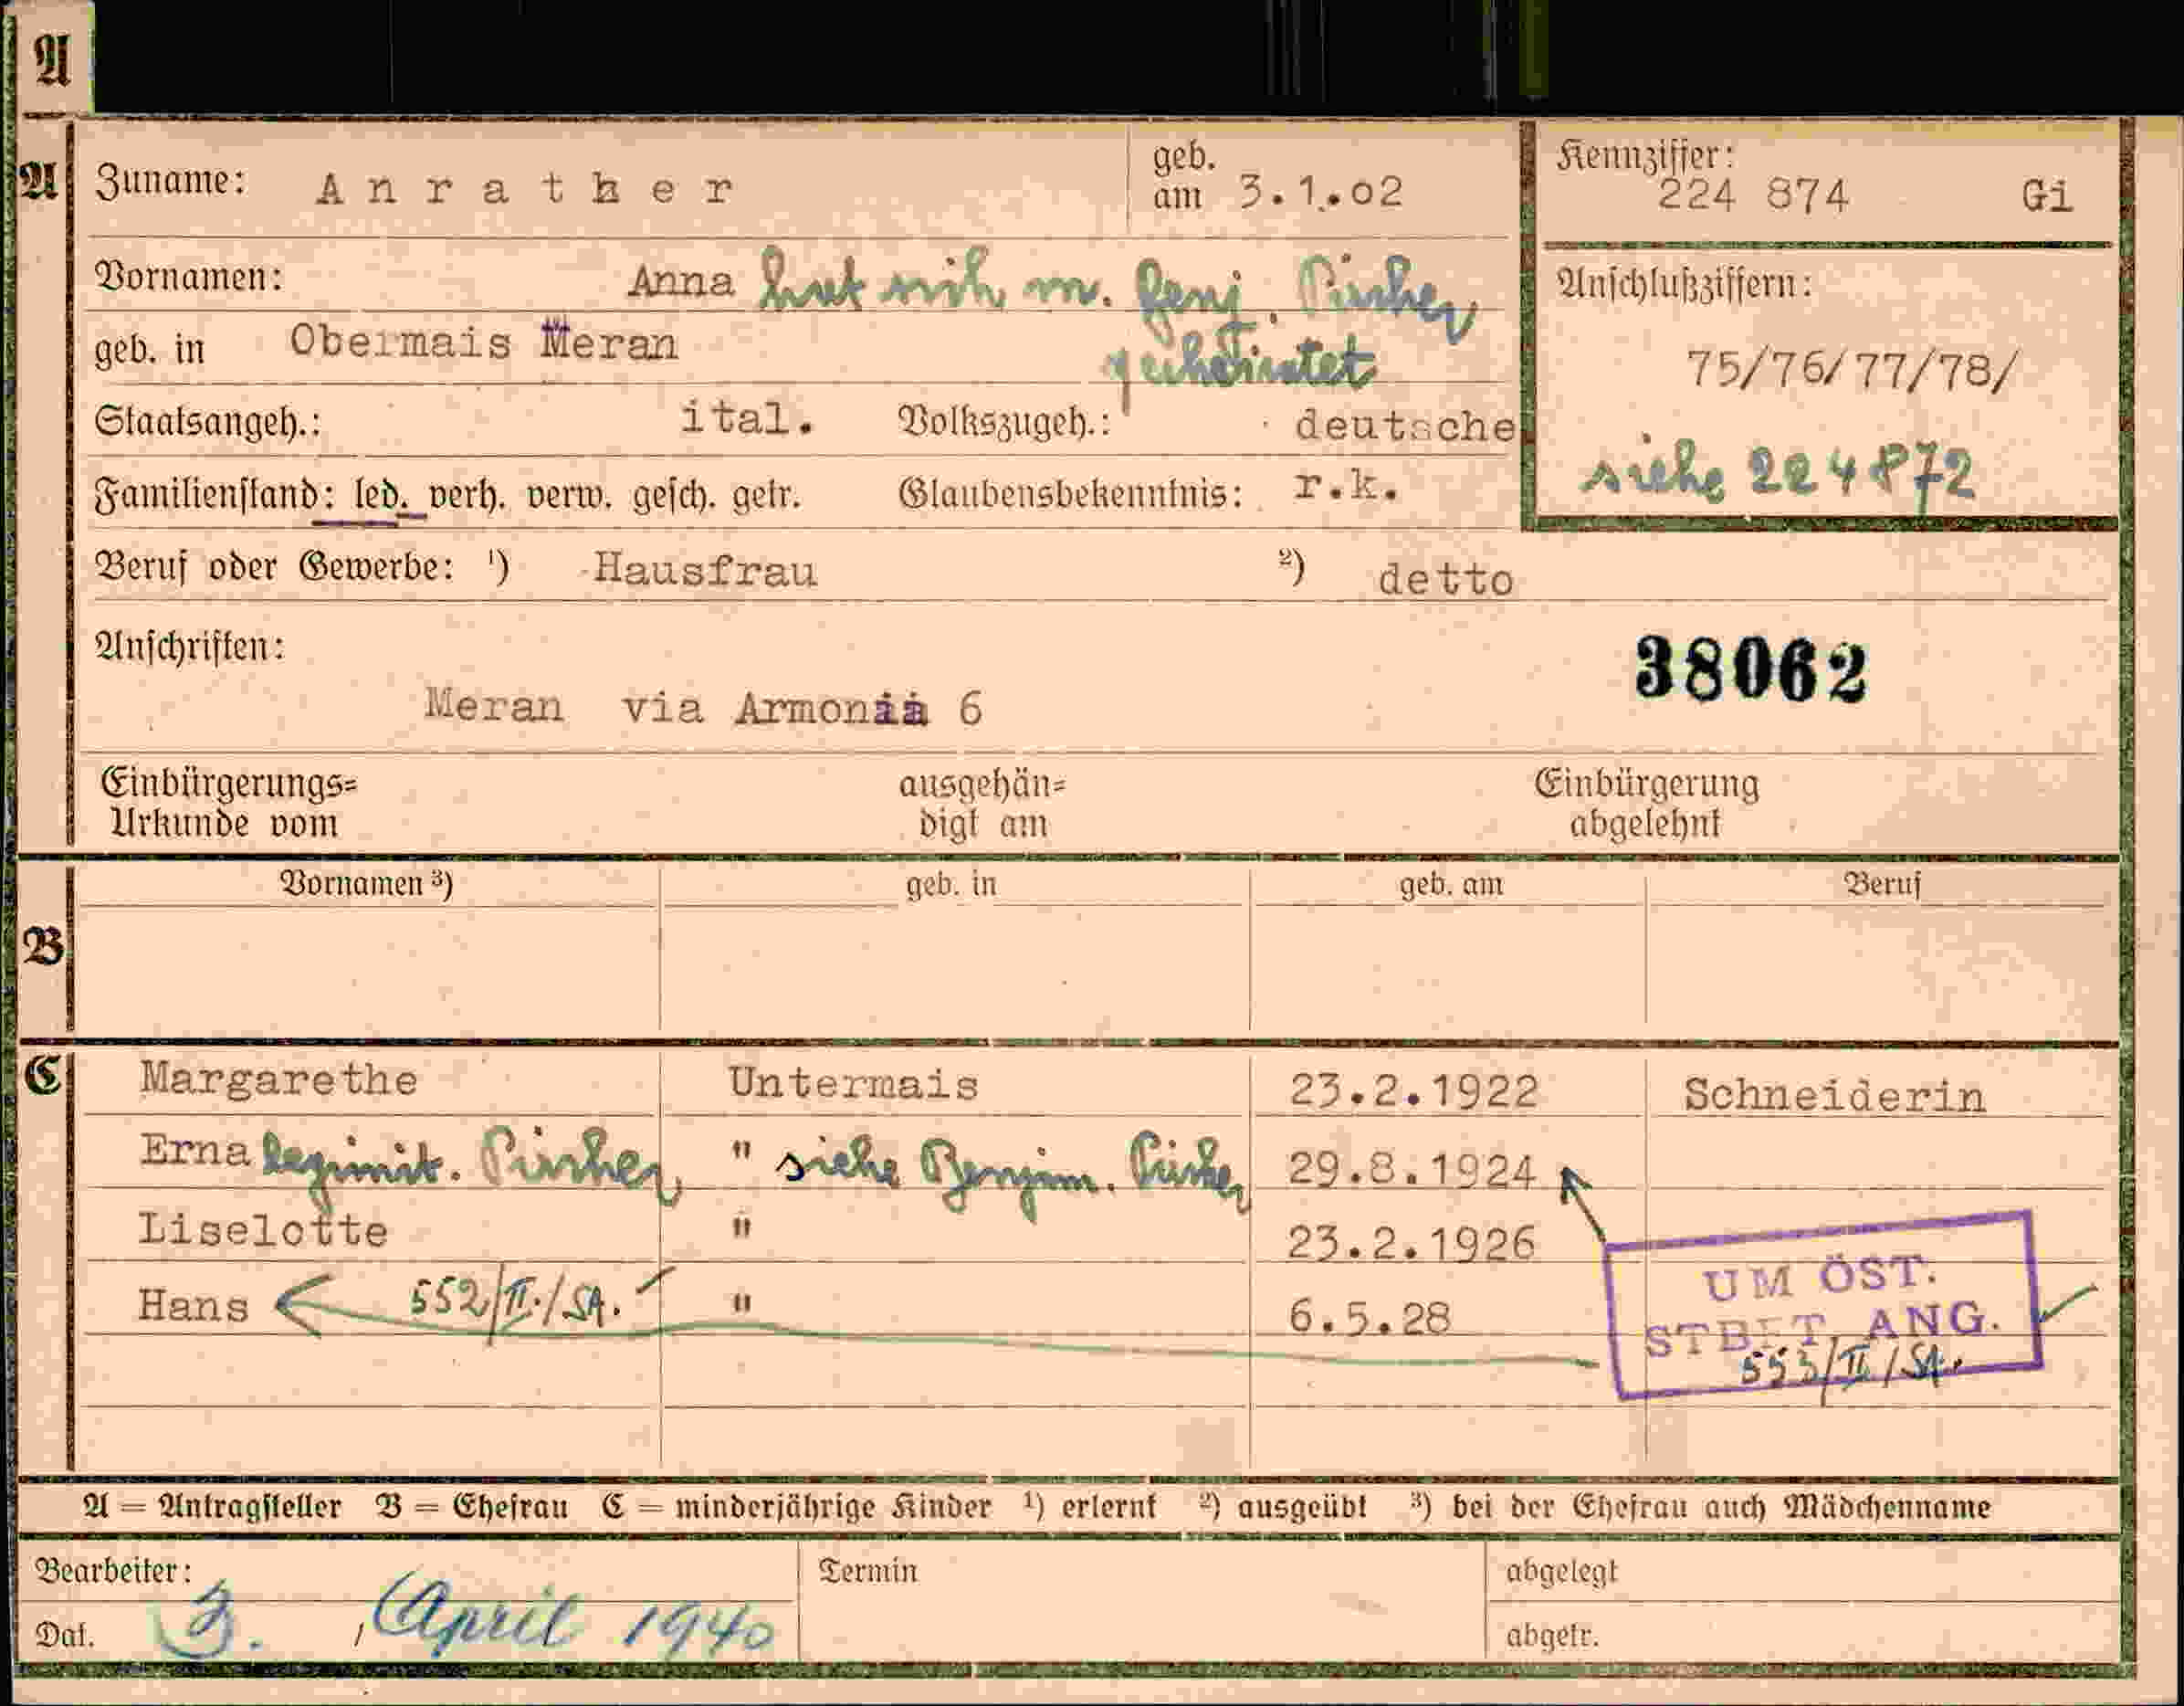 A
A Zuname: Anrather geb. am 3.1.02 Kennziffer: 224 874 Gi
Vornamen: Anna hat sich m. Benj. Pircher verheiratet
Anschlußziffern:
geb. in Obermais Meran
75/76/77/78/
Staatsangeh.: ital. Volkszugeh.: deutsche
siehe 224872
Familienstand: led. verh. verw. gesch. getr. Glaubensbekenntnis: r.k.
Beruf oder Gewerbe: 1) Hausfrau 2) detto
Anschriften:
38062
Meran via Armonia 6
Einbürgerungs= Urkunde vom ausgehän= digt am Einbürgerung abgelehnt
Vornamen 3) geb. in geb. am Beruf
B
C Margarethe Untermais 23.2.1922 Schneiderin
Erna legimit. Pircher " siehe Benjam. Pircher 29.8.1924
Liselotte " 23.2.1926
UM ÖST.
Hans 552/II./SA. " 6.5.28
STBET. ANG.
553/II/SA.
A = Antragsteller B = Ehefrau C = minderjährige Kinder 1) erlernt 2) ausgeübt 3) bei der Ehefrau auch Mädchenname
Bearbeiter: Termin abgelegt
Dat. 3. April 1940 abgetr.